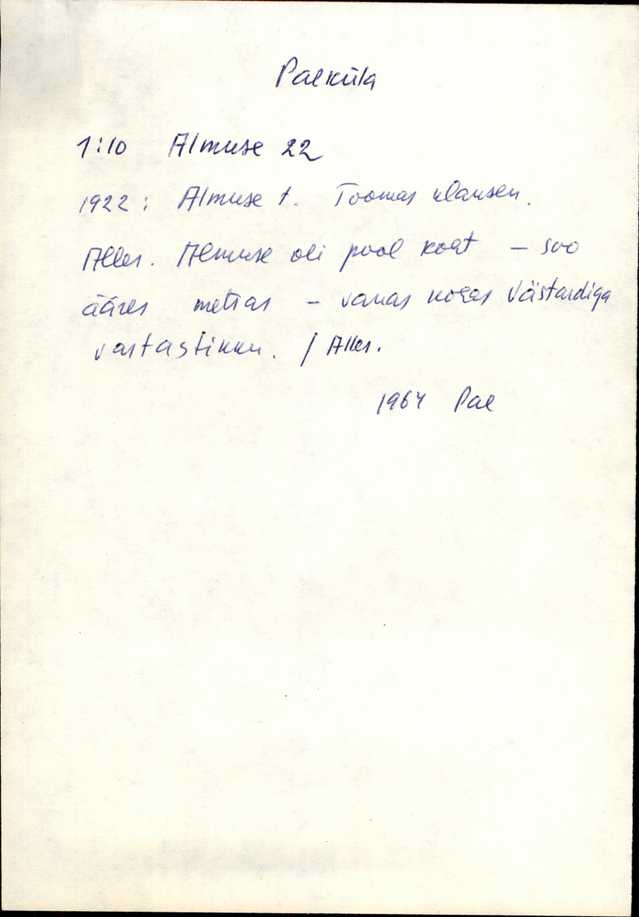 Palküla
1:10 Almuse 22
1922: Almuse t. Toomas Klansen.
Alles. Almuse oli pool koht – soo
ääres metsas – vanas kohas Västardiga
vastastikku. / Alles.
1964 Pal